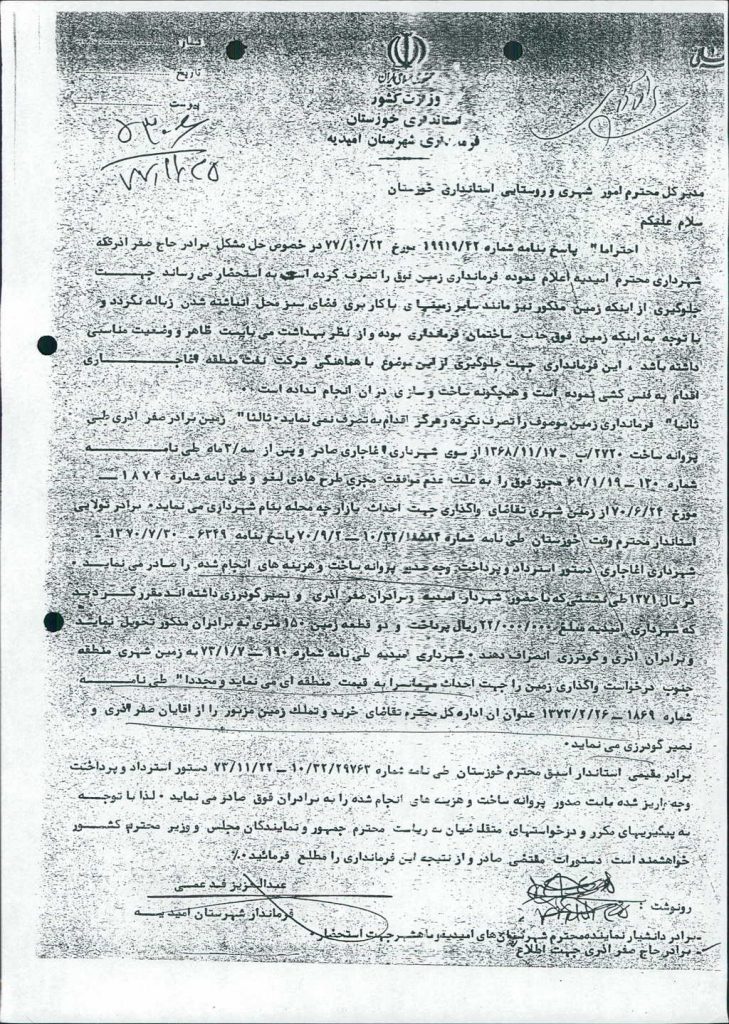 شماره
تاریخ
پیوست
۵۳۰۶
۷۷/۱۲/۲۵
جمهوری اسلامی ایران
وزارت کشور
استانداری خوزستان
فرمانداری شهرستان امیدیه
مدیر کل محترم امور شهری و روستایی استانداری خوزستان
سلام علیکم
احتراما" پاسخ بنامه شماره ۱۹۹۱۹/۴۲ مورخ ۷۷/۱۰/۲۲ در خصوص حل مشکل برادر حاج صفر آذری که
شهرداری محترم امیدیه اعلام نموده فرمانداری زمین فوق را تصرف کرده است به استحضار می رساند جهت
جلوگیری از اینکه زمین مذکور نیز مانند سایر زمینهای با کاربری فضای سبز محل انباشته شدن زباله نگردد و
با توجه به اینکه زمین فوق جنب ساختمان فرمانداری بوده و از نظر بهداشت می بایست ظاهر و وضعیت مناسبی
داشته باشد ، این فرمانداری جهت جلوگیری از این موضوع با هماهنگی شرکت نفت منطقه آغاجاری
اقدام به فنس کشی نموده است و هیچگونه ساخت و سازی در آن انجام نداده است .
ثانیا" فرمانداری زمین موصوف را تصرف نکرده و هرگز اقدام به تصرف نمی نماید . ثالثا" زمین برادر صفر آذری طی
پروانه ساخت ۲۷۲۰/ب - ۱۳۶۸/۱۱/۱۷ از سوی شهرداری آغاجاری صادر و پس از سه/۳ ماه طی نامه
شماره ۱۳۰ - ۶۹/۱/۱۹ مجوز فوق را به علت عدم موافقت مجری طرح هادی لغو و طی نامه شماره ۱۸۷۴ -
مورخ ۷۰/۶/۲۴ از زمین شهری تقاضای واگذاری جهت احداث بازارچه محله بنام شهرداری می نماید . برادر تولایی
استاندار محترم وقت خوزستان طی نامه شماره ۱۰/۳۲/۱۸۵۸۴ - ۷۰/۹/۲ پاسخ بنامه ۶۳۴۹ - ۱۳۷۰/۷/۳۰ -
شهرداری آغاجاری دستور استرداد و پرداخت وجه صدور پروانه ساخت و هزینه های انجام شده را صادر می نماید .
در سال ۱۳۷۱ طی نشستی که با حضور شهردار امیدیه و برادران صفر آذری و نصیر گودرزی داشته اند مقرر گردید
که شهرداری امیدیه مبلغ ۲۲/۰۰۰/۰۰۰ ریال پرداخت و دو قطعه زمین ۱۵۰ متری به برادران مذکور تحویل نمایند
و برادران آذری و گودرزی انصراف دهند . شهرداری امیدیه طی نامه شماره ۱۹۰ - ۷۳/۱/۷ به زمین شهری منطقه
جنوب درخواست واگذاری زمین را جهت احداث میهمانسرا به قیمت منطقه ای می نماید و مجددا" طی نامه
شماره ۱۸۶۹ - ۱۳۷۳/۲/۲۶ عنوان آن اداره کل محترم تقاضای خرید و تملک زمین مزبور را از آقایان صفر آذری و
نصیر گودرزی می نماید .
برادر مقیمی استاندار اسبق محترم خوزستان طی نامه شماره ۱۰/۳۲/۲۹۷۶۳ - ۷۳/۱۱/۲۲ دستور استرداد و پرداخت
وجه واریز شده بابت صدور پروانه ساخت و هزینه های انجام شده را به برادران فوق صادر می نماید . لذا با توجه
به پیگیریهای مکرر و درخواستهای متقاضیان به ریاست محترم جمهور و نمایندگان مجلس و وزیر محترم کشور
خواهشمند است دستورات مقتضی صادر و از نتیجه این فرمانداری را مطلع فرمائید .%
عبدالعزیز فدعمی
فرماندار شهرستان امیدیه
رونوشت :
- برادر دانشیار نماینده محترم شهرستان های امیدیه و ماهشهر جهت استحضار .
- برادر حاج صفر آذری جهت اطلاع